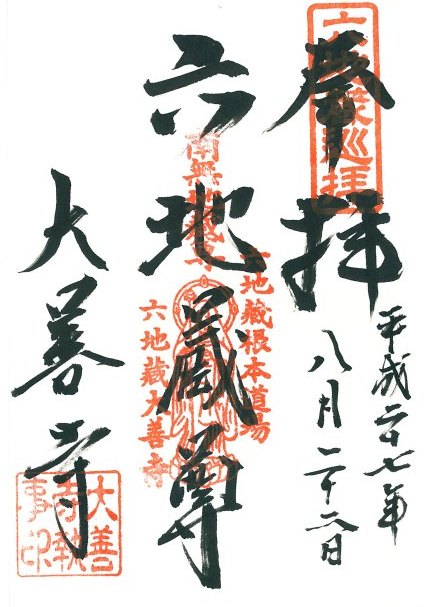 六地蔵巡拝
奉拝
平成二十七年
八月二十二日
六地蔵尊
南無地蔵尊
六地蔵根本道場
六地蔵大善寺
大善寺
大善
寺執
事印